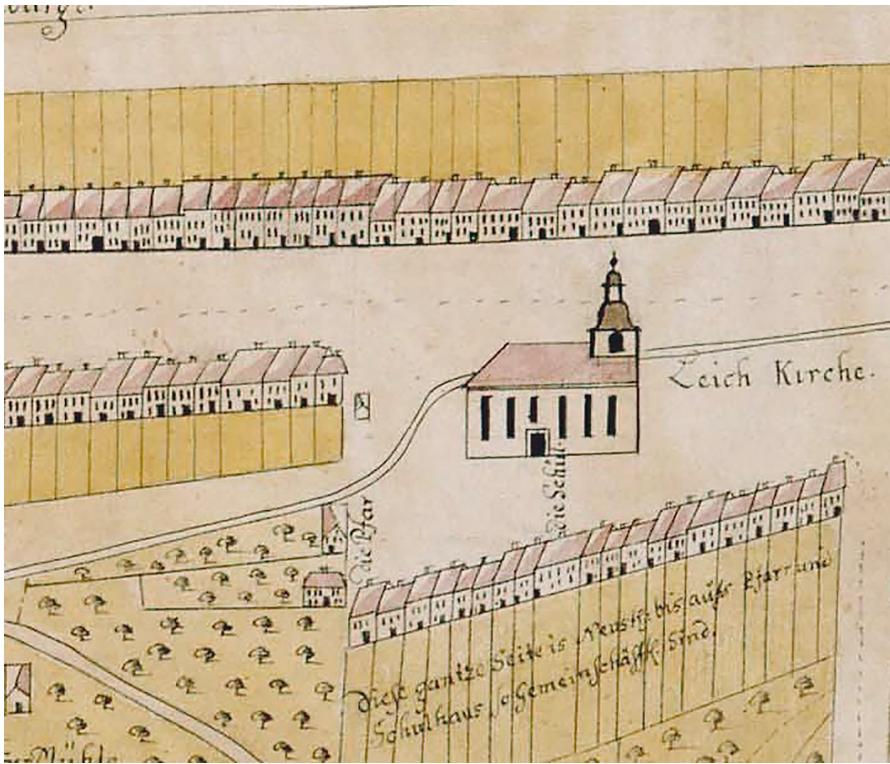 Leich Kirche.
die Schul.
die Pfar
diese gantze Seite is Neustf: bis aufs Pfarr und
Schulhaus, so Gemeinschäfftl: sind.
Mühle